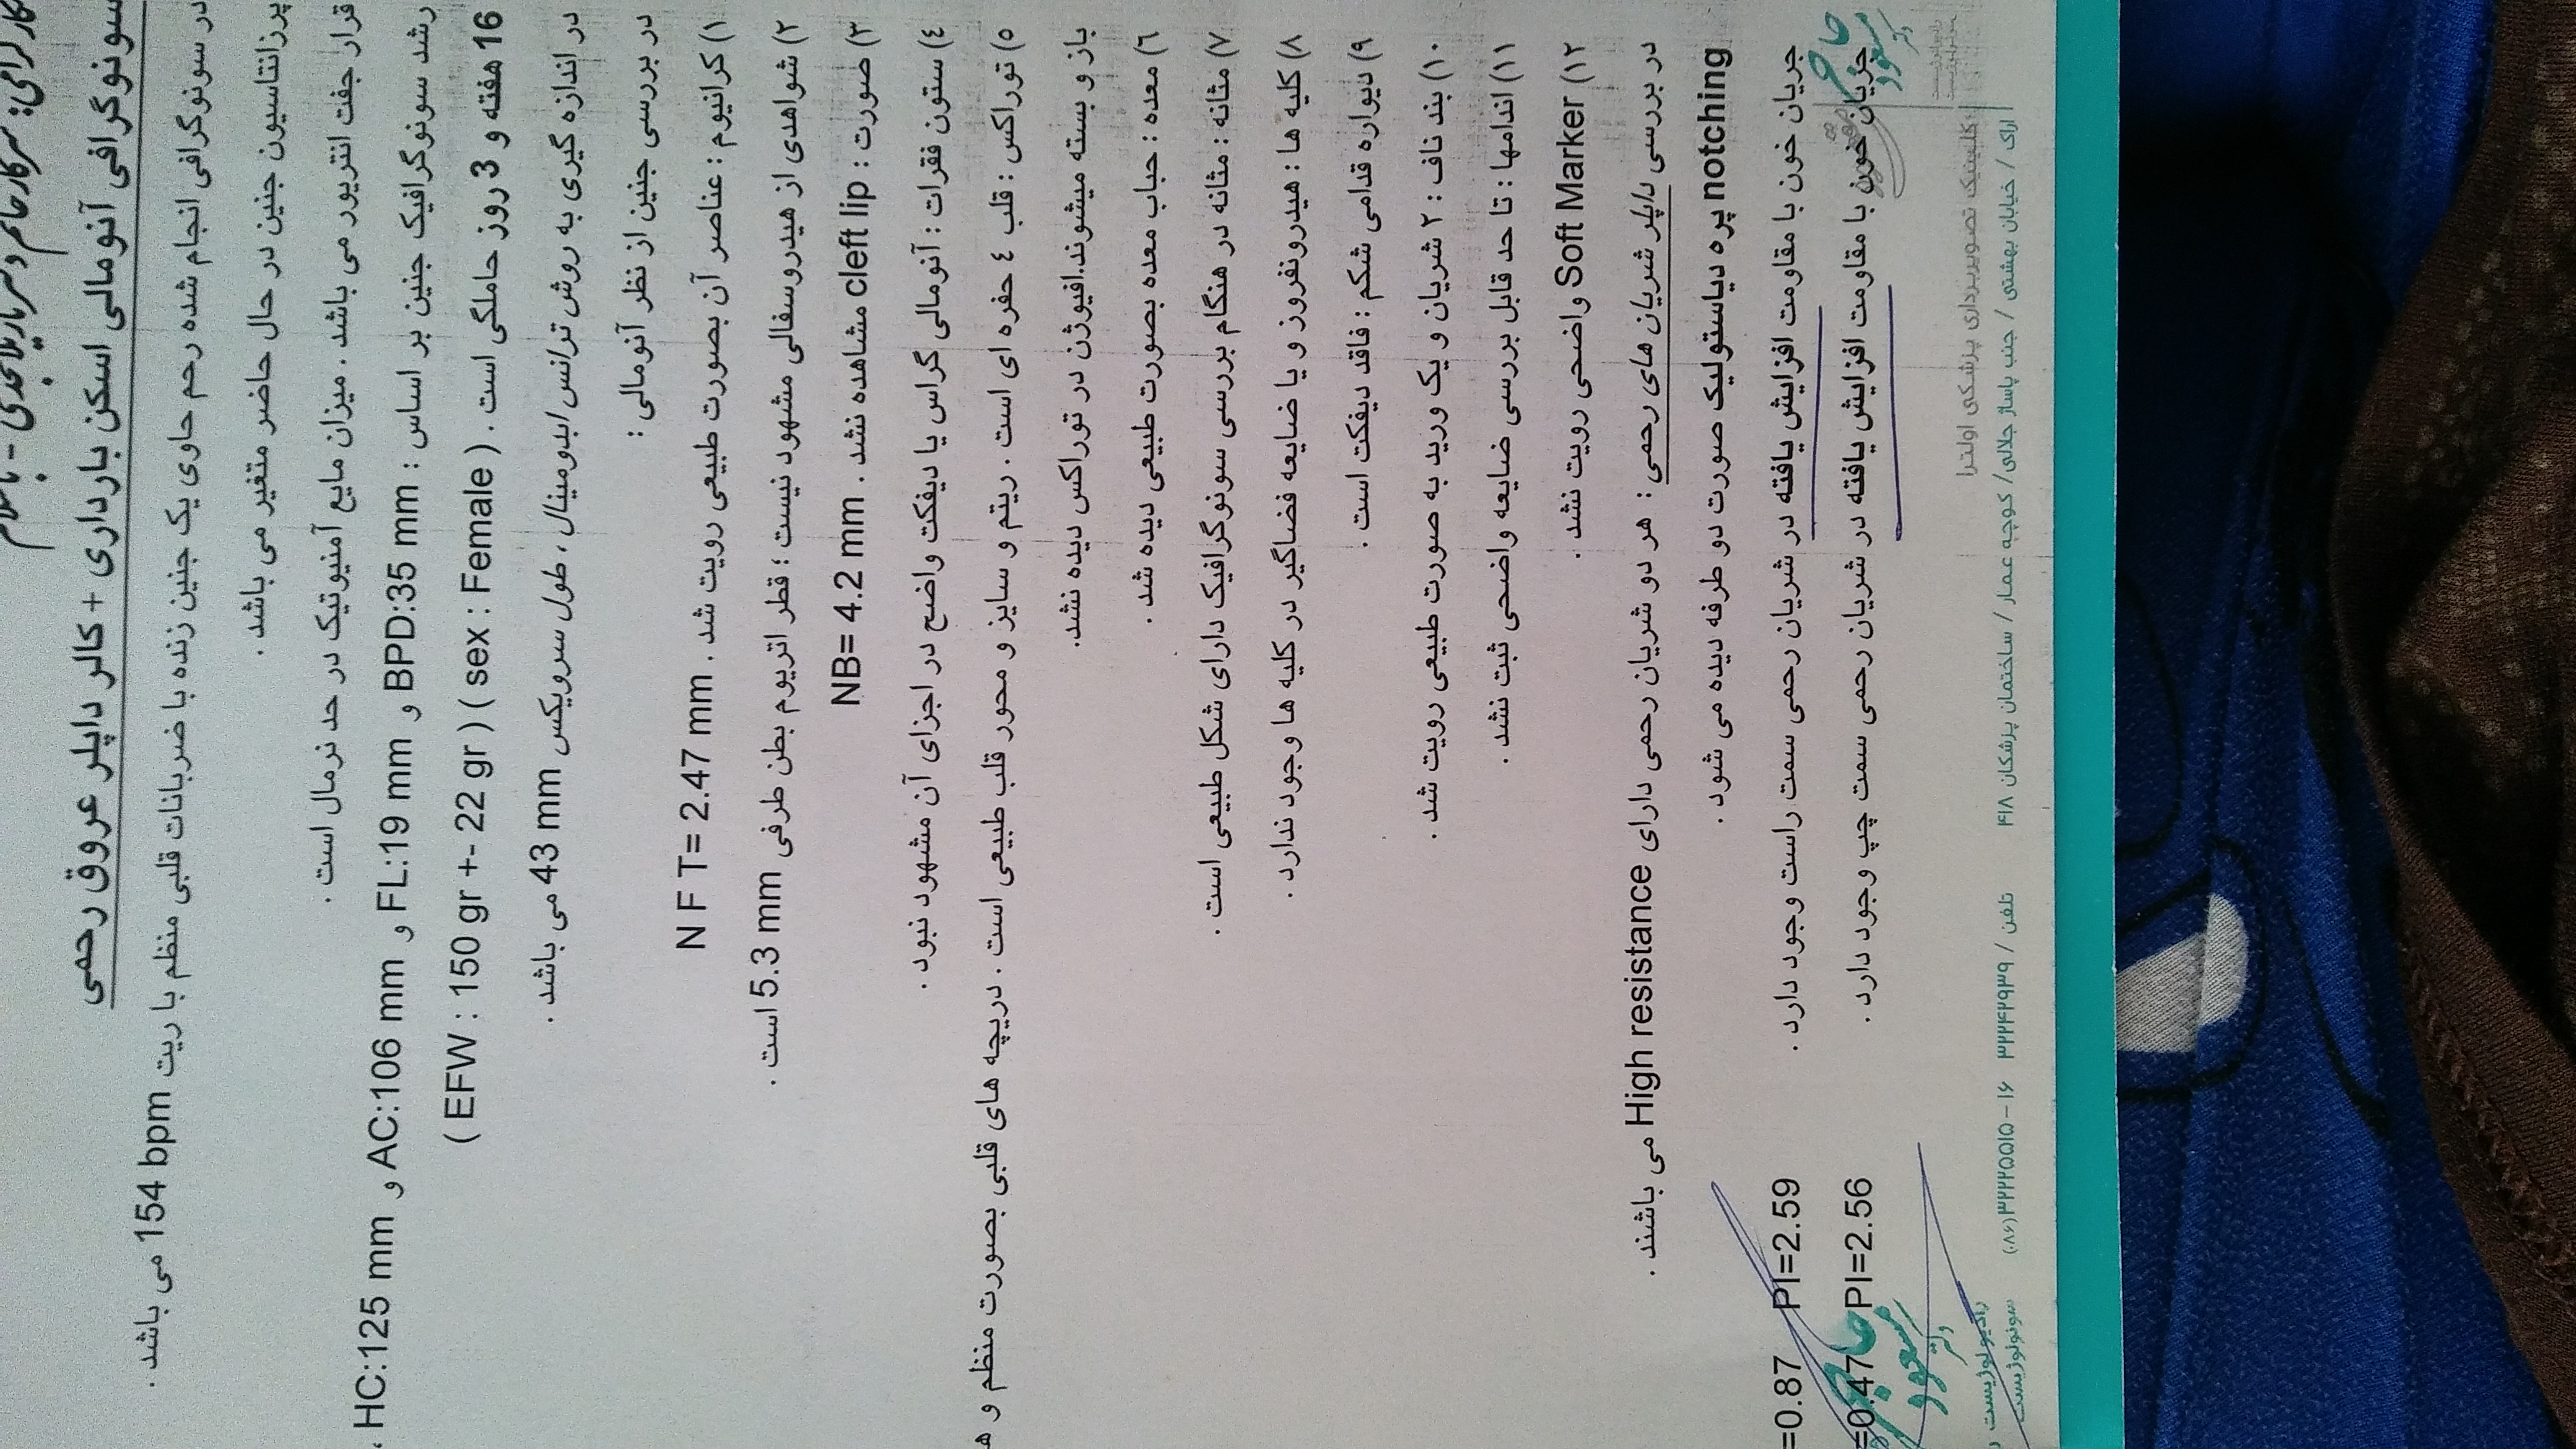 همکار گرامی: سرکار خانم دکتر
سونوگرافی آنومالی اسکن بارداری + کالر داپلر عروق رحمی
در سونوگرافی انجام شده رحم حاوی یک جنین زنده با ضربانات قلبی منظم با ریت 154 bpm می باشد .
پرزانتاسیون جنین در حال حاضر متغیر می باشد .
قرار جفت انتریور می باشد . میزان مایع آمنیوتیک در حد نرمال است .
رشد سونوگرافیک جنین بر اساس : BPD:35 mm و FL:19 mm و AC:106 mm و HC:125 mm ،
16 هفته و 3 روز حاملگی است . ( EFW : 150 gr +- 22 gr ) ( sex : Female )
در اندازه گیری به روش ترانس ابدومینال ، طول سرویکس 43 mm می باشد .
در بررسی جنین از نظر آنومالی :
۱) کرانیوم : عناصر آن بصورت طبیعی رویت شد . N F T= 2.47 mm
۲) شواهدی از هیدروسفالی مشهود نیست ؛ قطر اتریوم بطن طرفی 5.3 mm است .
۳) صورت : cleft lip مشاهده نشد . NB= 4.2 mm
٤) ستون فقرات : آنومالی گراس یا دیفکت واضح در اجزای آن مشهود نبود .
٥) توراکس : قلب ٤ حفره ای است . ریتم و سایز و محور قلب طبیعی است . دریچه های قلبی بصورت منظم و ه
باز و بسته میشوند.افیوژن در توراکس دیده نشد.
٦) معده : حباب معده بصورت طبیعی دیده شد .
۷) مثانه : مثانه در هنگام بررسی سونوگرافیک دارای شکل طبیعی است .
۸) کلیه ها : هیدرونفروز و یا ضایعه فضاگیر در کلیه ها وجود ندارد .
۹) دیواره قدامی شکم : فاقد دیفکت است .
۱۰) بند ناف : ۲ شریان و یک ورید به صورت طبیعی رویت شد .
۱۱) اندامها : تا حد قابل بررسی ضایعه واضحی ثبت نشد .
۱۲) Soft Marker واضحی رویت نشد .
در بررسی داپلر شریان های رحمی : هر دو شریان رحمی دارای High resistance می باشند .
notching پره دیاستولیک صورت دو طرفه دیده می شود .
جریان خون با مقاومت افزایش یافته در شریان رحمی سمت راست وجود دارد . =0.87 PI=2.59
جریان خون با مقاومت افزایش یافته در شریان رحمی سمت چپ وجود دارد . =0.47 PI=2.56
دکتر مسعود
دکتر مسعود
کلینیک تصویربرداری پزشکی اولترا
رادیولوژیست
سونولوژیست
اراک / خیابان بهشتی / جنب پاساژ جلالی / کوچه عمار / ساختمان پزشکان ۴۱۸ تلفن / ۳۲۲۴۲۹۳۹ ۱۶ - ۳۲۲۲۵۵۱۵(۰۸۶)